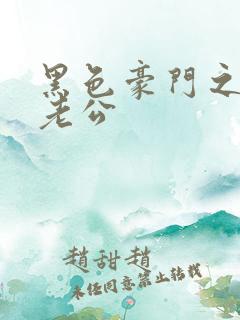 黑色豪門之
老公
趙甜趙
未經同意禁止轉載